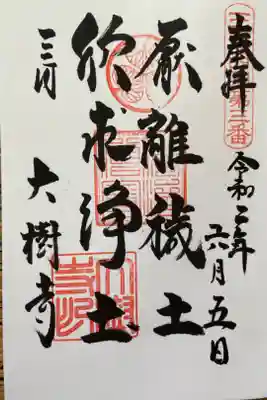 奉拝
令和二年
六月五日
厭離穢土
欣求浄土
三河
大樹寺